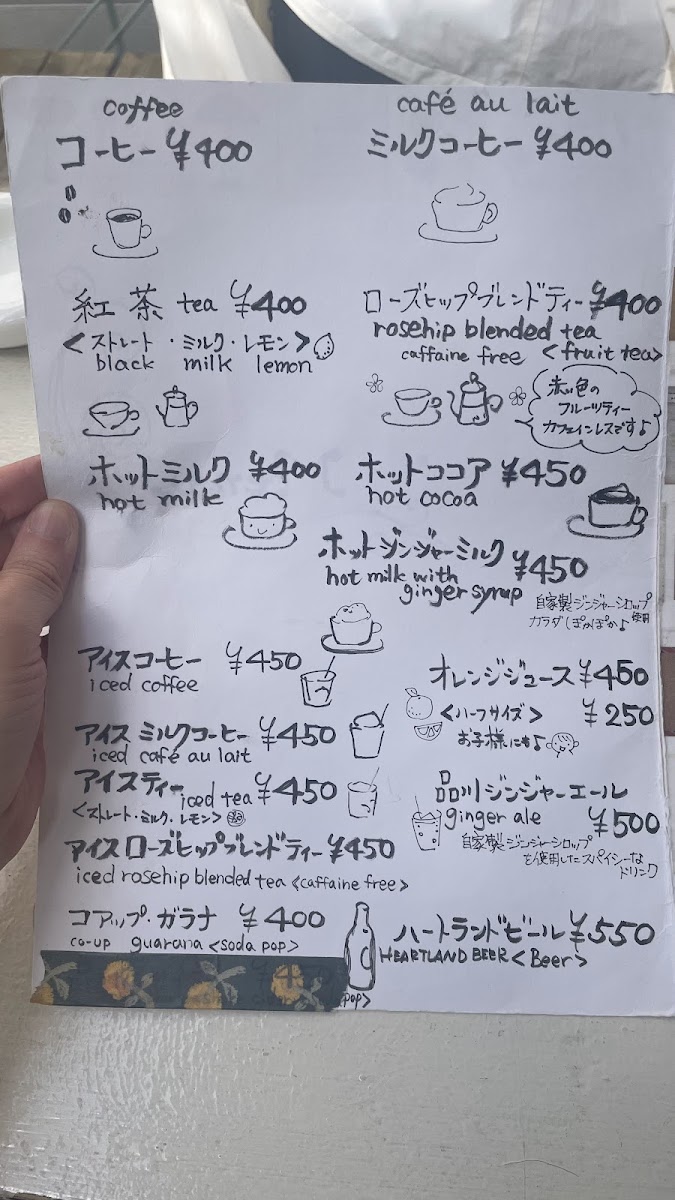 coffee
コーヒー ¥400
café au lait
ミルクコーヒー ¥400
紅茶 tea ¥400
<ストレート・ミルク・レモン>
black milk lemon
ローズヒップブレンドティー ¥400
rosehip blended tea
caffaine free <fruit tea>
赤い色の
フルーツティー
カフェインレスです♪
ホットミルク ¥400
hot milk
ホットココア ¥450
hot cocoa
ホットジンジャーミルク ¥450
hot milk with
ginger syrup
自家製ジンジャーシロップ
使用
カラダぽかぽか♪
アイスコーヒー ¥450
iced coffee
オレンジジュース ¥450
<ハーフサイズ> ¥250
お子様にも♪
アイスミルクコーヒー ¥450
iced café au lait
アイスティー iced tea ¥450
<ストレート・ミルク・レモン>
品川ジンジャーエール
ginger ale ¥500
自家製ジンジャーシロップ
を使用したスパイシーな
ドリンク
アイスローズヒップブレンドティー ¥450
iced rosehip blended tea <caffaine free>
コアップ・ガラナ ¥400
co-up guarana <soda pop>
ハートランドビール ¥550
HEARTLAND BEER <Beer>
pop>